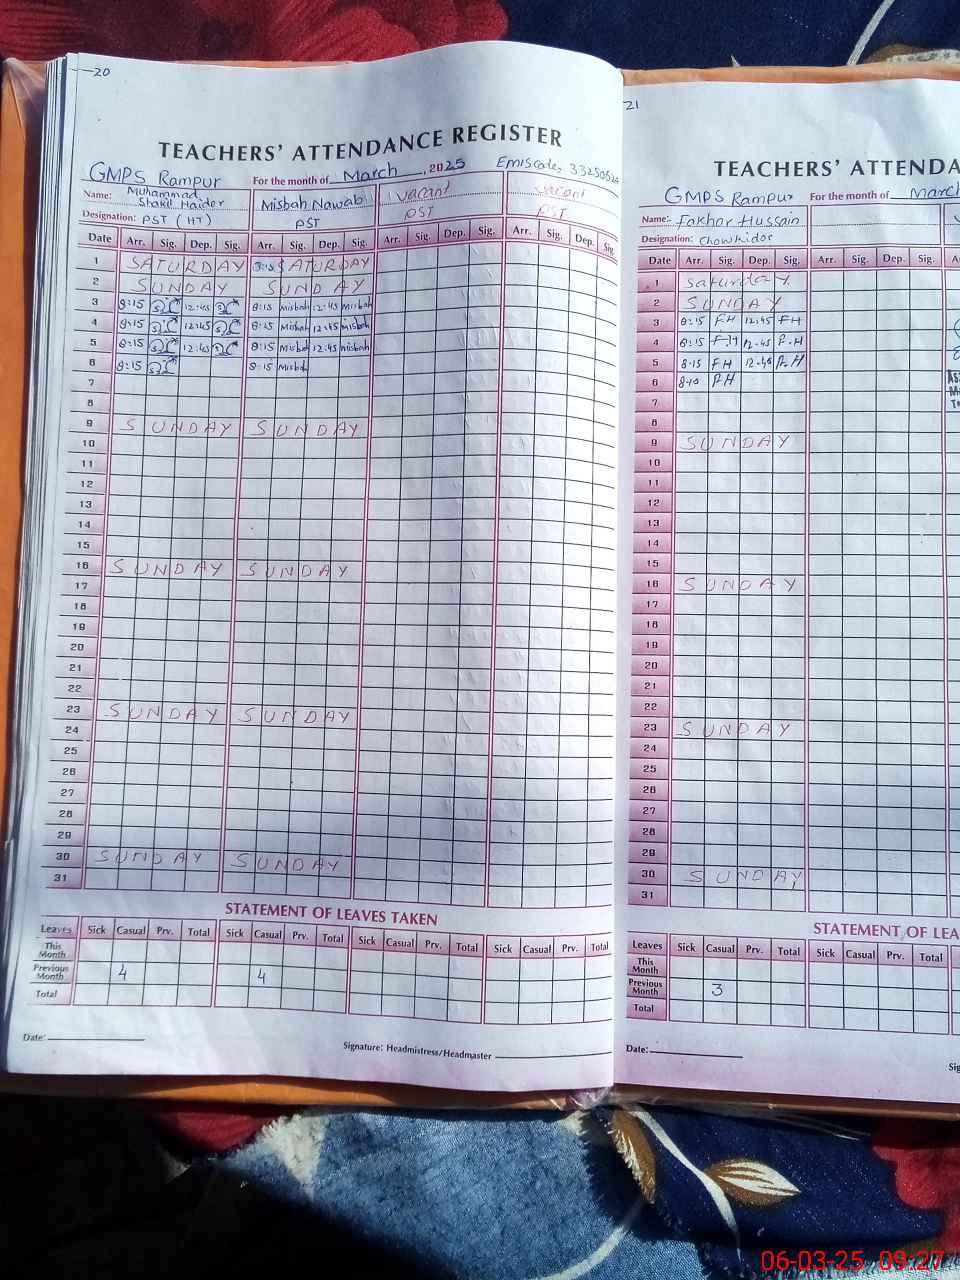 20
TEACHERS' ATTENDANCE REGISTER
GMPS Rampur For the month of March, 2025 Emiscode 3325052
Name: Muhammad Shakil Haider Misbah Nawab vacant vacant
Designation: PST (HT) PST PST PST
Date Arr. Sig. Dep. Sig. Arr. Sig. Dep. Sig. Arr. Sig. Dep. Sig. Arr. Sig. Dep. Sig.
1 SATURDAY 8:15 SATURDAY
2 SUNDAY SUNDAY
3 8:15 12:45 8:15 misbah 12:45 misbah
4 8:15 12:45 8:15 Misbah 12:45 misbah
5 8:15 12:45 8:15 Misbah 12:45 misbah
6 8:15 8:15 Misbah
7
8
9 SUNDAY SUNDAY
10
11
12
13
14
15
16 SUNDAY SUNDAY
17
18
19
20
21
22
23 SUNDAY SUNDAY
24
25
26
27
28
29
30 SUNDAY SUNDAY
31
STATEMENT OF LEAVES TAKEN
Leaves Sick Casual Prv. Total Sick Casual Prv. Total Sick Casual Prv. Total Sick Casual Prv. Total
This Month
Previous Month 4 4
Total
Date:
Signature: Headmistress/Headmaster
21
TEACHERS' ATTENDA
GMPS Rampur For the month of March
Name: Fakhar Hussain
Designation: Chowkidar
Date Arr. Sig. Dep. Sig. Arr. Sig. Dep. Sig.
1 Saturday
2 SUNDAY
3 8:15 FH 12:45 FH
4 8:15 FH 12:45 F.H
5 8:15 FH 12:45 F.H
6 8:15 F.H
7
8
9 SUNDAY
10
11
12
13
14
15
16 SUNDAY
17
18
19
20
21
22
23 SUNDAY
24
25
26
27
28
29
30 SUNDAY
31
STATEMENT OF LEA
Leaves Sick Casual Prv. Total Sick Casual Prv. Total
This Month
Previous Month 3
Total
Date:
Sig
06-03-25 09:27